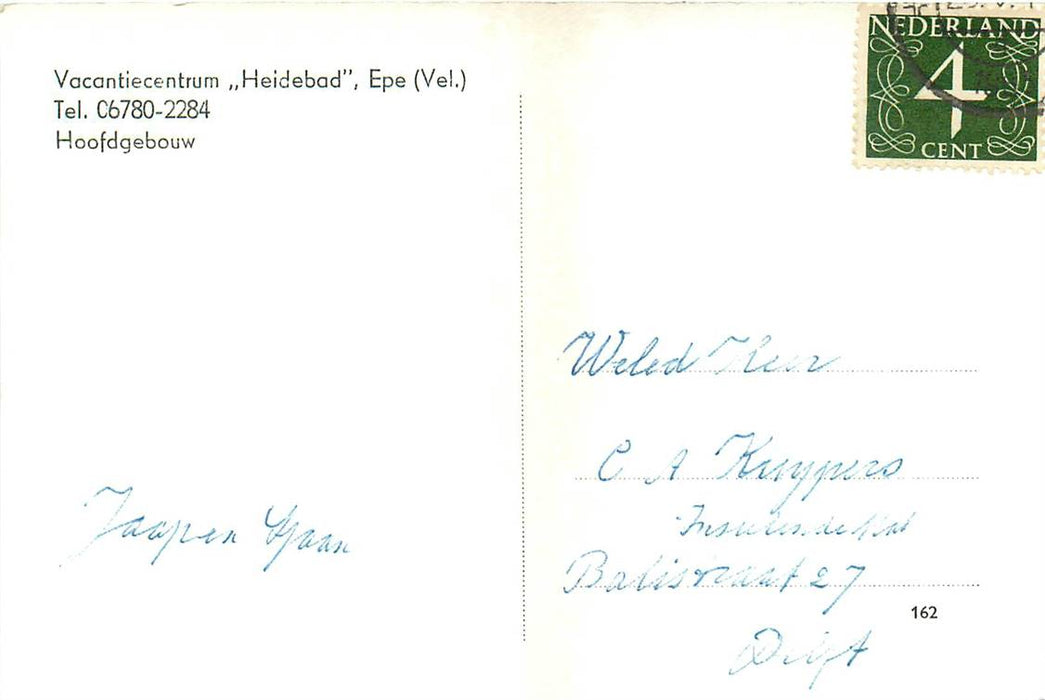 Vacantiecentrum „Heidebad”, Epe (Vel.)
Tel. 06780-2284
Hoofdgebouw
NEDERLAND
4
CENT
Weled Heer
C A Kuypers
Balistraat 27
162
Delft
Jaap en